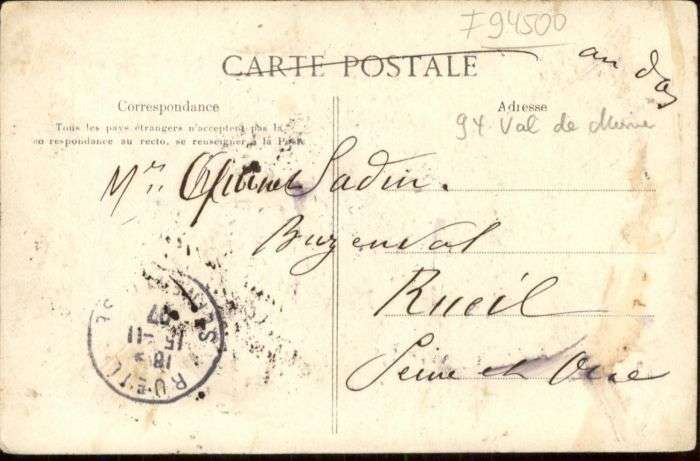 F94500
CARTE POSTALE
au dos
Correspondance
Adresse
Tous les pays étrangers n'acceptent pas la
correspondance au recto, se renseigner à la Poste
94 Val de Marne
Sadin.
Buzenval
Rueil
Seine et Oise
RUEIL
18
15-11
07